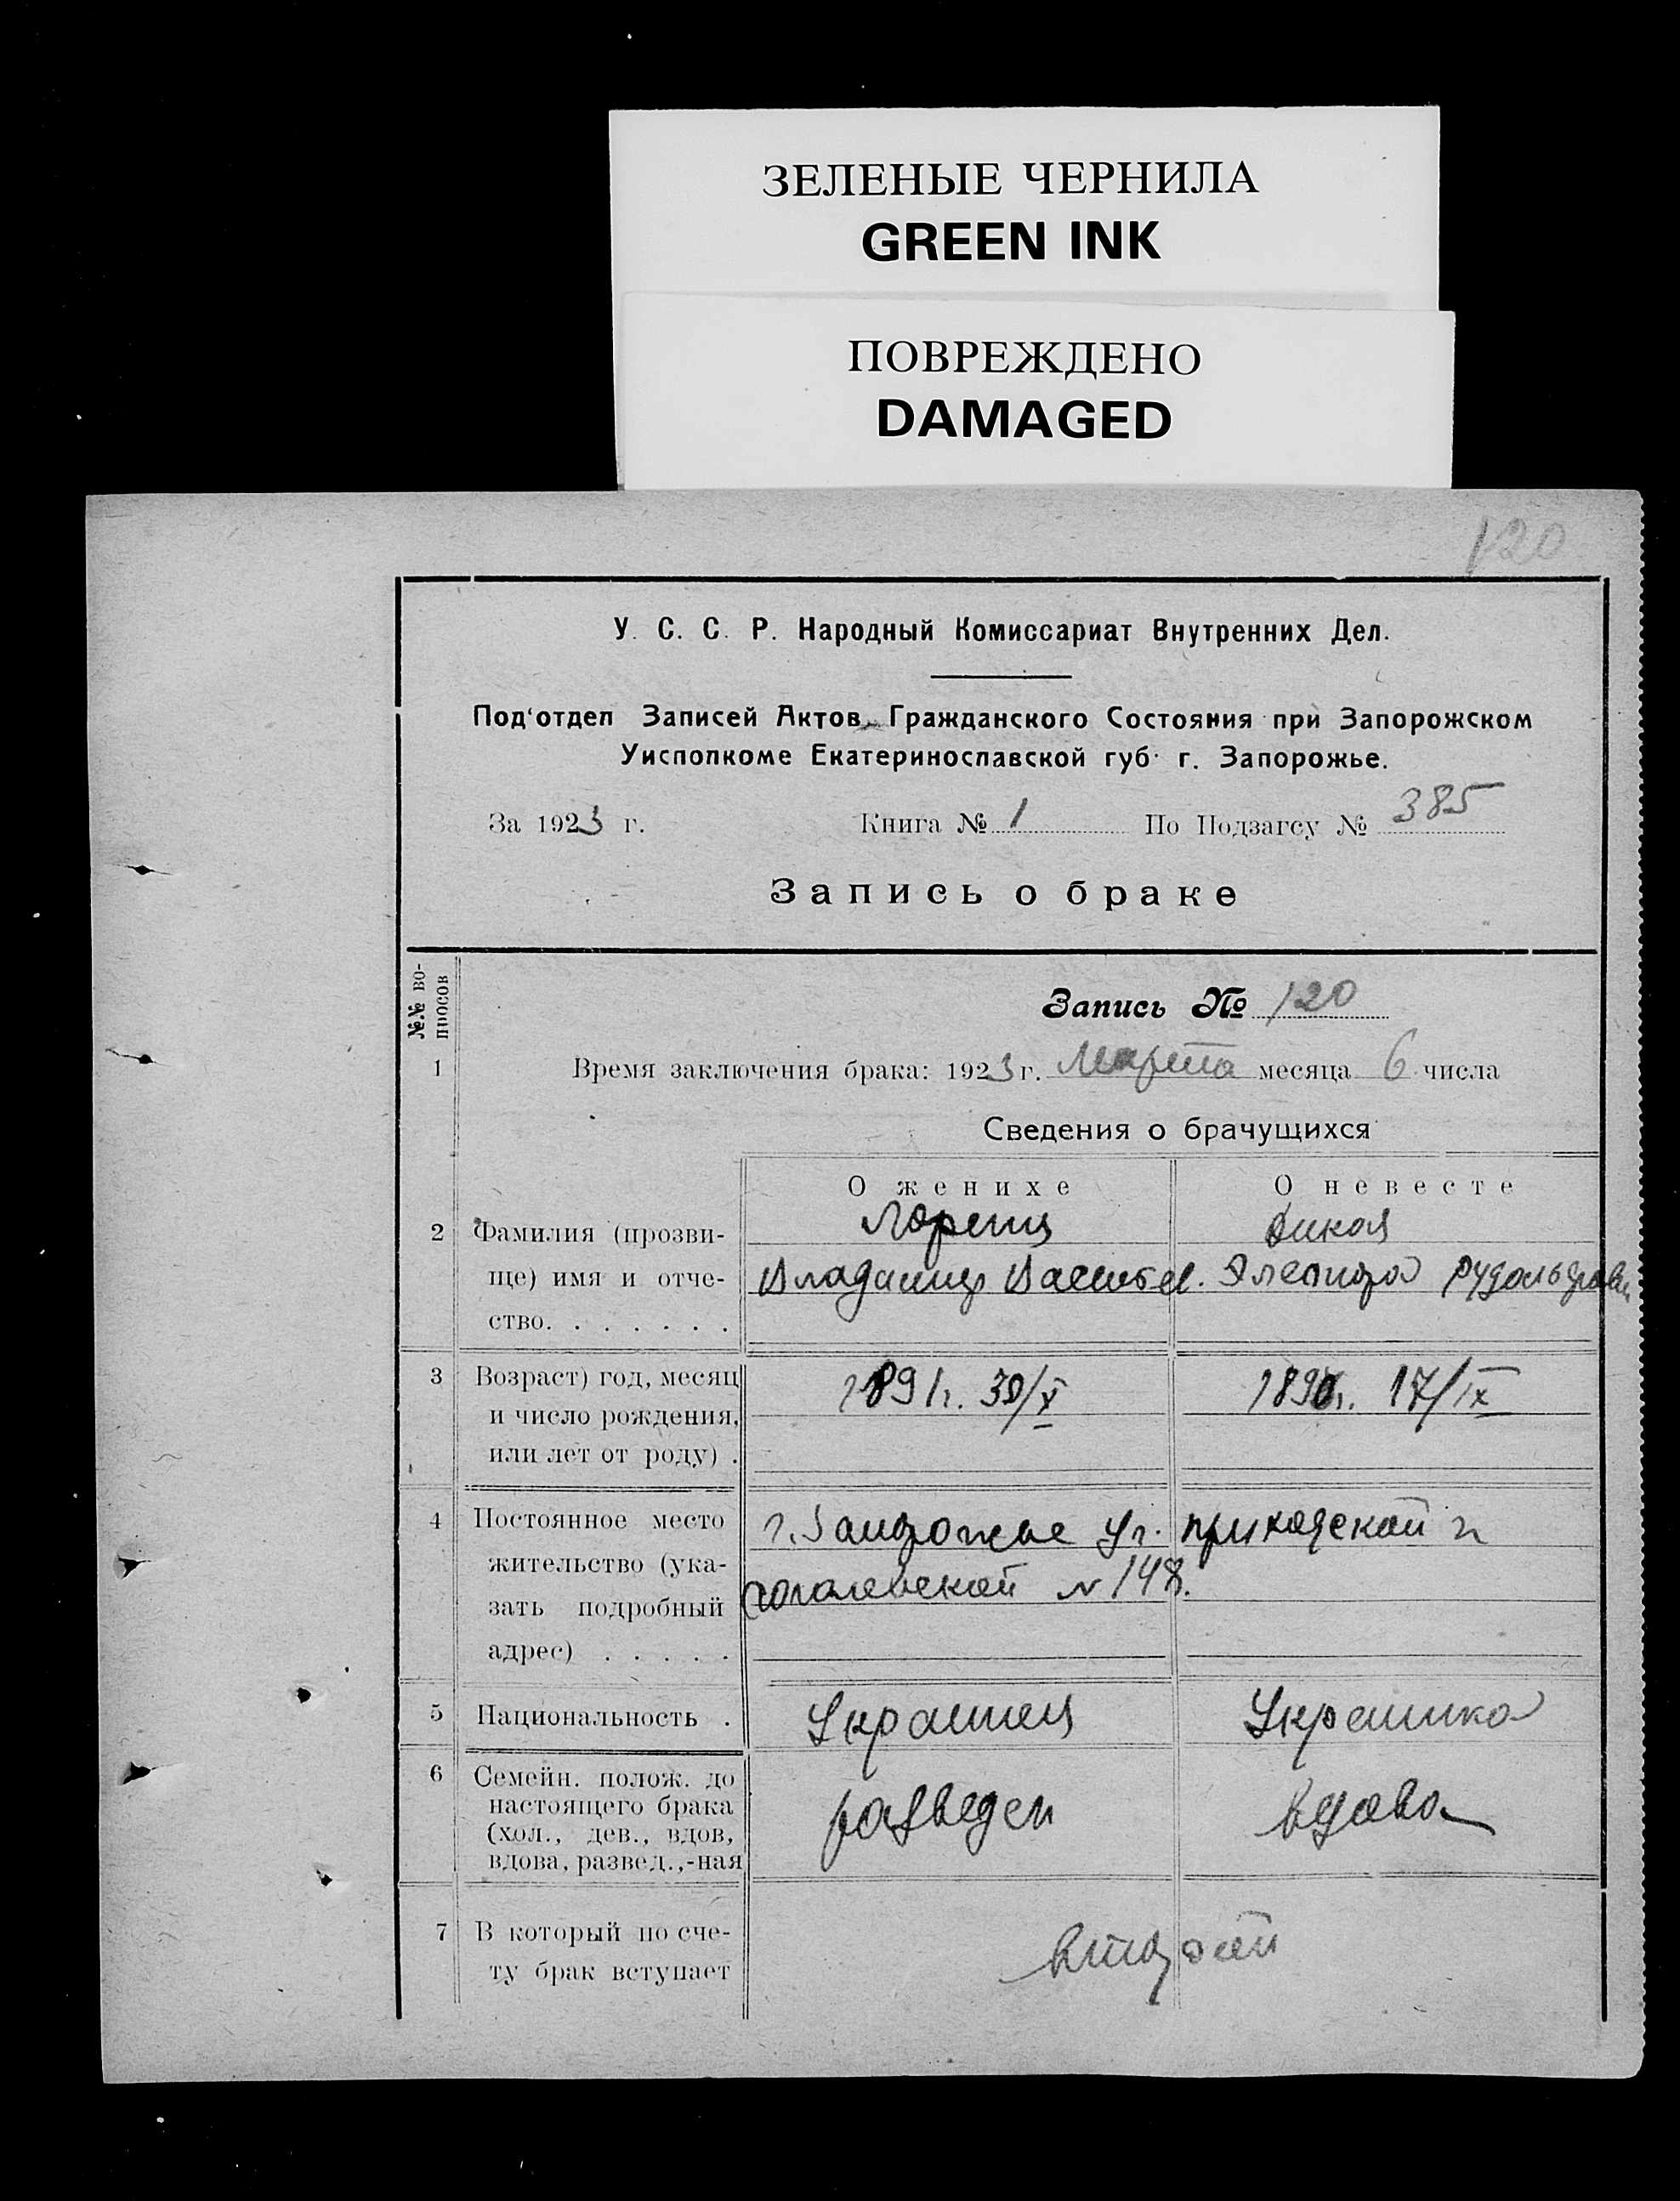 ЗЕЛЕНЫЕ ЧЕРНИЛА
GREEN INK
ПОВРЕЖДЕНО
DAMAGED
120
У. С. С. Р. Народный Комиссариат Внутренних Дел.
Под'отдел Записей Актов Гражданского Состояния при Запорожском
Уисполкоме Екатеринославской губ. г. Запорожье.
За 1923 г. Книга № 1 По Подзагсу № 385
Запись о браке
№№ вопросов
Запись № 120
1 Время заключения брака: 1923 г. Марта месяца 6 числа
Сведения о брачущихся
О женихе О невесте
2 Фамилия (прозви- Лоренц Дикая
ще) имя и отче- Владимир Васильев. Элеонора Рудольфовн
ство. . . . . . .
3 Возраст) год, месяц 1891г. 30/X 17/IX
и число рождения,
или лет от роду) .
4 Постоянное место г. Запорожье уг. приходской и
жительство (ука- гоголевской №148.
зать подробный
адрес) . . . . .
5 Национальность . Украинец Украинка
6 Семейн. полож. до
настоящего брака разведен вдова
(хол., дев., вдов,
вдова, развед.,-ная
7 В который по сче- второй
ту брак вступает